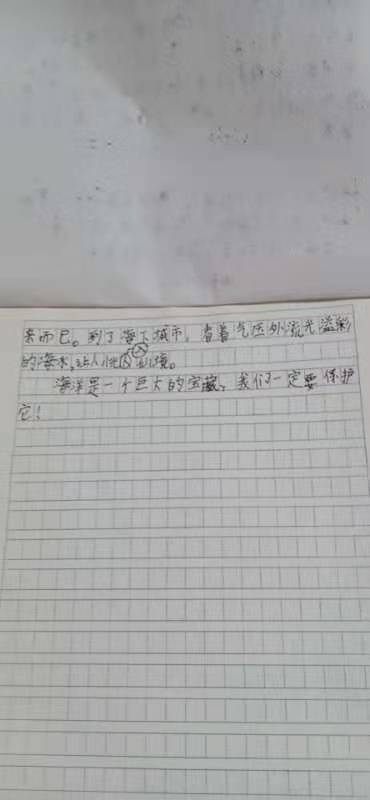 而已。到了海下城市,看着气压外流光溢彩
的海水,让人恍因仙境。
海洋是一个巨大的宝藏,我们一定要保护
它!